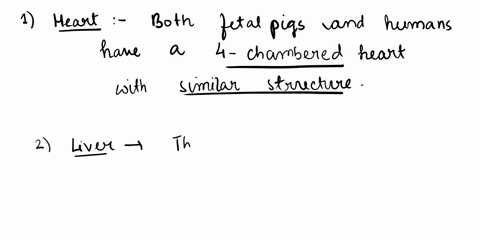 1) Heart :- Both fetal pigs and humans
have a 4-chambered heart
with similar structure.
2) Liver → Th